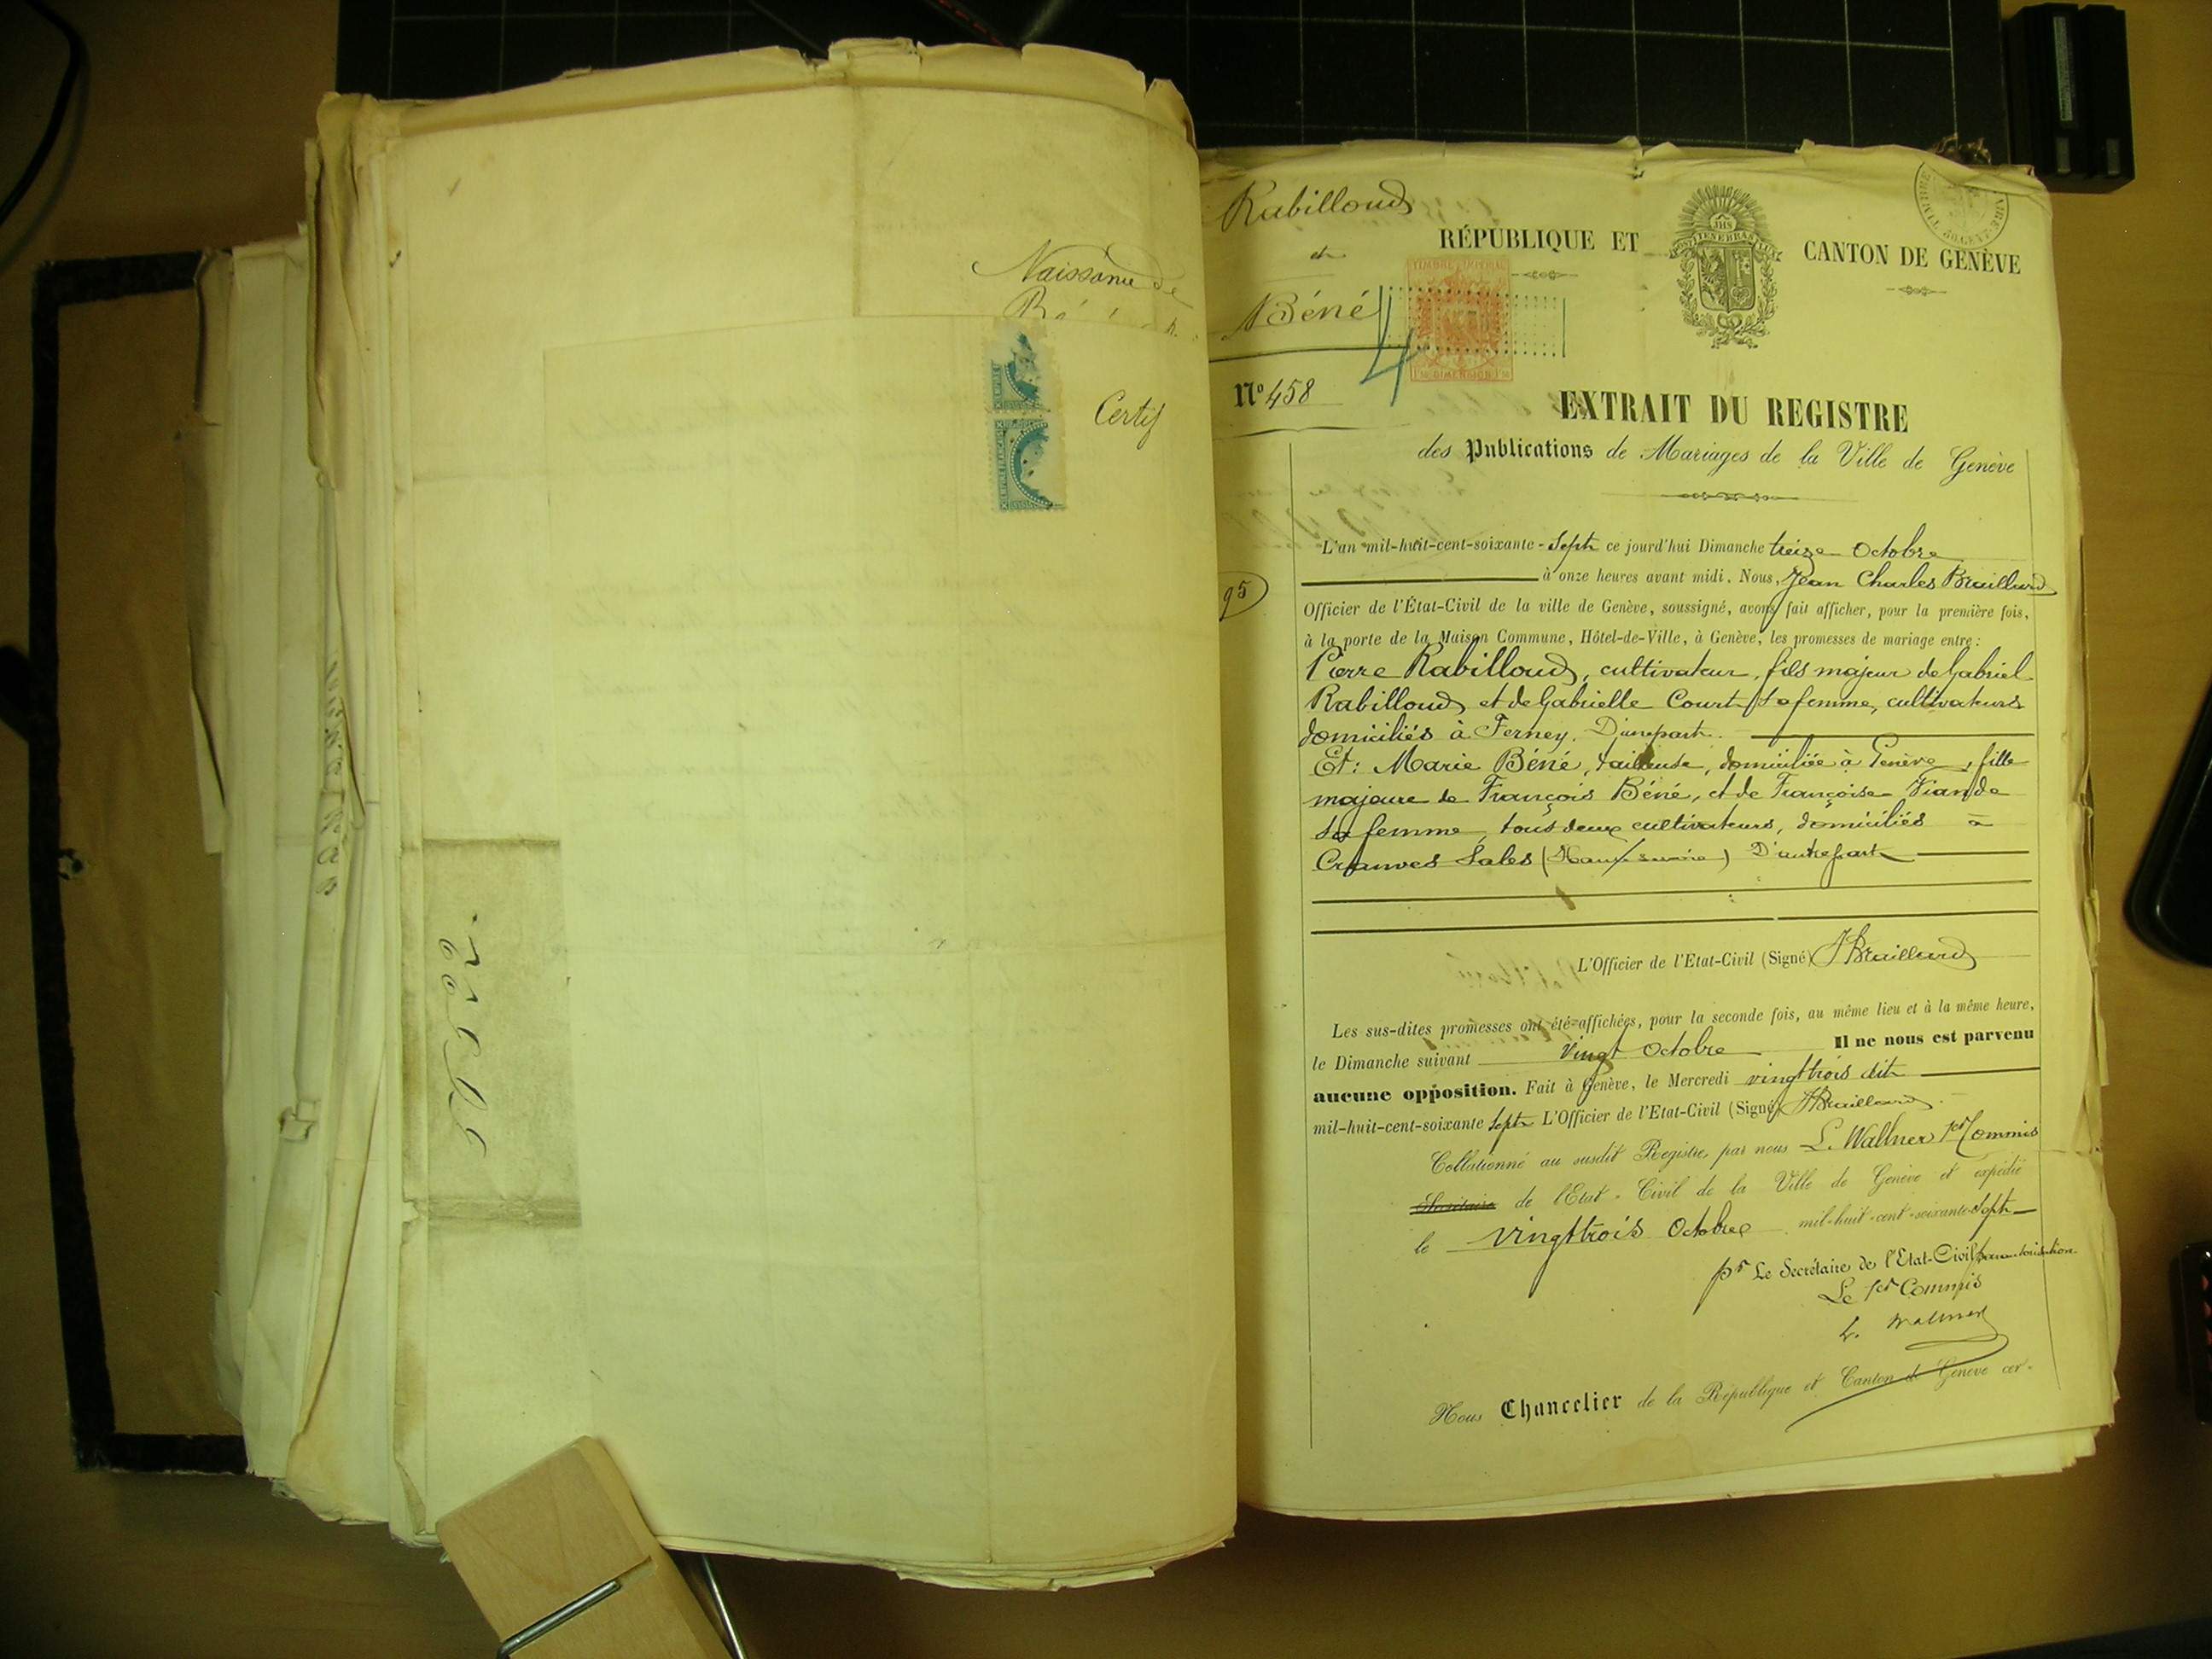 Naissance de
Certif
Rabilloud
et
Béné
4
Nº 458
95
RÉPUBLIQUE ET CANTON DE GENÈVE
JHS
POST TENEBRAS LUX
TIMBRE IMPÉRIAL
DIMENSION
EXTRAIT DU REGISTRE
des Publications de Mariages de la Ville de Genève
L'an mil-huit-cent-soixante-Sept ce jourd'hui Dimanche treize Octobre
à onze heures avant midi. Nous, Jean Charles Braillard
Officier de l'État-Civil de la ville de Genève, soussigné, avons fait afficher, pour la première fois,
à la porte de la Maison Commune, Hôtel-de-Ville, à Genève, les promesses de mariage entre:
Pierre Rabilloud, cultivateur, fils majeur de Gabriel
Rabilloud et de Gabrielle Court sa femme, cultivateurs
domiciliés à Ferney. D'une part.
Et: Marie Béné, tailleuse, domiciliée à Genève, fille
majeure de François Béné, et de Françoise Viande
sa femme, tous deux cultivateurs, domiciliés à
Cranves Sales (Haute Savoie) D'autre part
L'Officier de l'Etat-Civil (Signé) J Braillard
Les sus-dites promesses ont été affichées, pour la seconde fois, au même lieu et à la même heure,
le Dimanche suivant vingt Octobre Il ne nous est parvenu
aucune opposition. Fait à Genève, le Mercredi vingt trois dit
mil-huit-cent-soixante Sept L'Officier de l'Etat-Civil (Signé) J Braillard
Collationné au susdit Registre, par nous L. Wallner 1er Commis
Secrétaire de l'Etat-Civil de la Ville de Genève et expédié
le vingt trois Octobre mil-huit-cent-soixante-Sept
pr Le Secrétaire de l'Etat-Civil par autorisation
Le 1er Commis
L. Wallner
Nous Chancelier de la République et Canton de Genève cer-